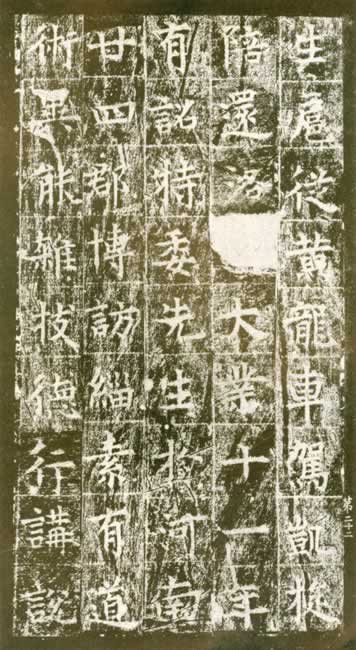 生扈從黃龍車駕凱旋
陪還洛大業十一年
有詔特委先生於河南
廿四郡博訪緇素有道
術異能雜技德行講說
第二三